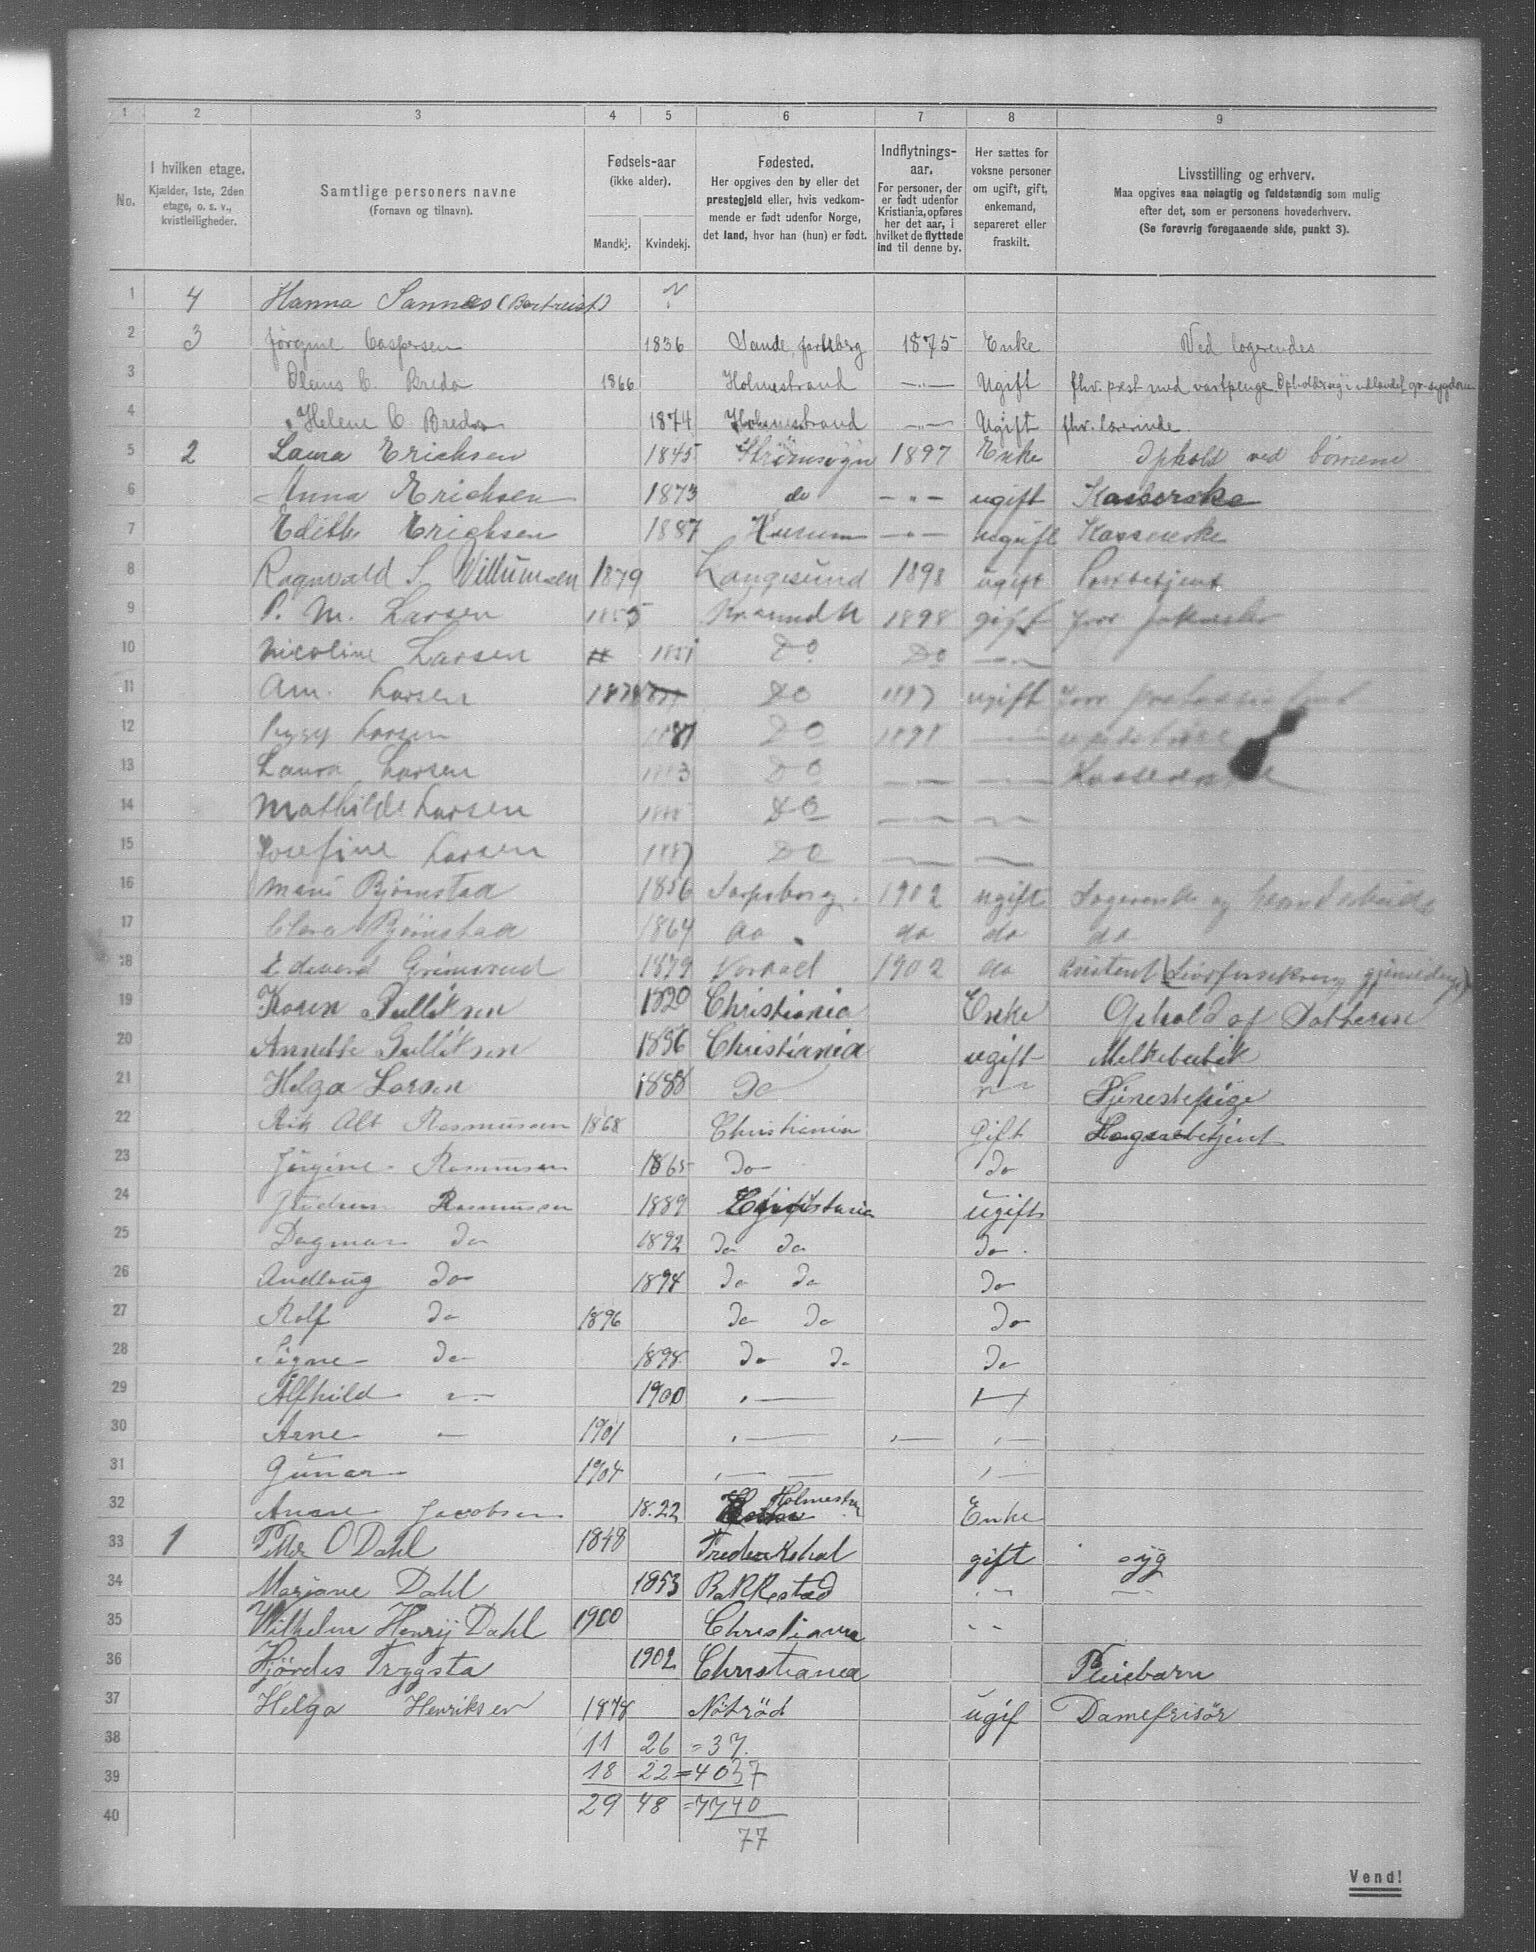 1 2 3 4 5 6 7 8 9
No.
I hvilken etage.
Kjælder, 1ste, 2den
etage, o. s. v.,
kvistleiligheder.
Samtlige personers navne
(Fornavn og tilnavn).
Fødsels-aar
(ikke alder).
Mandkj. Kvindekj.
Fødested.
Her opgives den by eller det
prestegjeld eller, hvis vedkom-
mende er født udenfor Norge,
det land, hvor han (hun) er født.
Indflytnings-
aar.
For personer, der
er født udenfor
Kristiania, opføres
her det aar, i
hvilket de flyttede
ind til denne by.
Her sættes for
voksne personer
om ugift, gift,
enkemand,
separeret eller
fraskilt.
Livsstilling og erhverv.
Maa opgives saa nøiagtig og fuldstændig som mulig
efter det, som er personens hovederhverv.
(Se forøvrig foregaaende side, punkt 3).
1 4 Hanna Sannæs (Bortreist) ?
2 3 Jørgine Caspersen 1836 Sande, Jarlsberg 1875 Enke Ved logerendes
3 Olaus C. Bredo 1866 Holmestrand —"— Ugift fhv. præst med vartpenge. Opholdt sig i udlandet gr. sygdom
4 Helene C. Bredo 1874 Holmestrand —"— Ugift fhv. lærerinde.
5 2 Laura Ericksen 1845 Strømsogn 1897 Enke Ophold ved børnene
6 Anna Ericksen 1873 do —"— ugift Kasserske
7 Edith Ericksen 1887 Hurum —"— ugift Kasserske
8 Ragnvald S. Willumsen 1879 Langesund 1898 ugift Postbetjent
9 P. M. Larsen 1855 Kr.sund N 1898 gift
10 Nicoline Larsen 1851 Do Do —"—
11 Am. Larsen 1878 Do 1897 ugift
12 Larsen 1881 Do 1898 —"—
13 Laura Larsen 1883 Do — — Kasserske
14 Mathilde Larsen Do — —
15 Josefine Larsen 1887 Do — —
16 Marie Bjørnstad 1856 Sarpsborg 1902 ugift Logerende og haandarbeide
17 Clara Bjørnstad 1864 do do do do
18 Edvard Grimsrud 1879 1902 do Assistent (Livsforsikring gjensidige)
19 Karen Gulliksen 1820 Christiania Enke Ophold af Datteren
20 Annette Gulliksen 1856 Christiania ugift Melkebutik
21 Helga Larsen 1888 Do "" Tjenestepige
22 Alb Rasmussen 1868 Christiania Gift Lagerbetjent
23 Jørgine Rasmussen 1865 Do Do
24 Gudrun Rasmussen 1889 Christiania ugift
25 Dagmar Do 1892 Do Do Do
26 Andlaug Do 1894 Do Do Do
27 Rolf Do 1896 Do Do Do
28 Signe Do 1898 Do Do Do
29 Alfhild —"— 1900 — —
30 Arne — 1901 — — —
31 Gunar 1904 — —
32 Anne Jacobsen 1822 Holmestr Enke
33 1 Peter O Dahl 1848 Frederikshal gift syg
34 Marjane Dahl 1853 Rakkestad —"— —"—
35 Wilhelm Henrij Dahl 1900 Christiania —"—
36 Hjördis Trygsta 1902 Christiania Pleiebarn
37 Helga Henriksen 1878 Nøtrød ugif Damefrisör
38 11 26 = 37.
39 18 22 = 40 37
40 29 48 = 77 40
77
Vend!